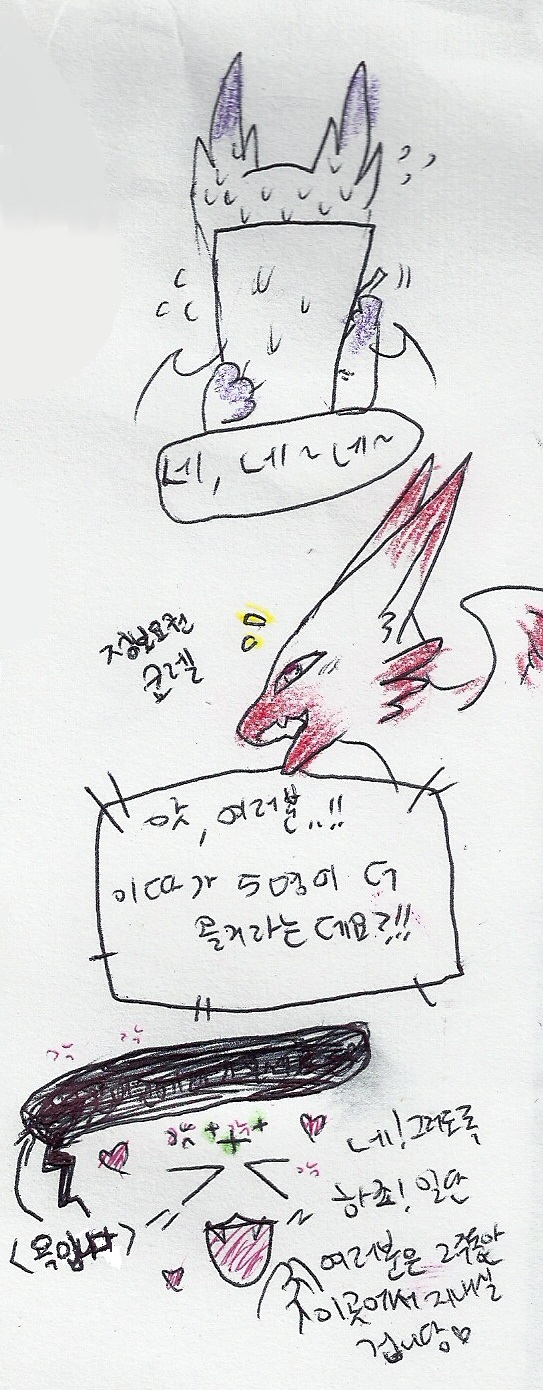 네, 네~네~
정보요원
코렐
앗, 여러분..!!
이따가 5명이 더
올거라는데요?!!
<욕입니다>
네! 그러도록
하죠! 일단
여러분은 2주동안
이곳에서 지내실
겁니당♡